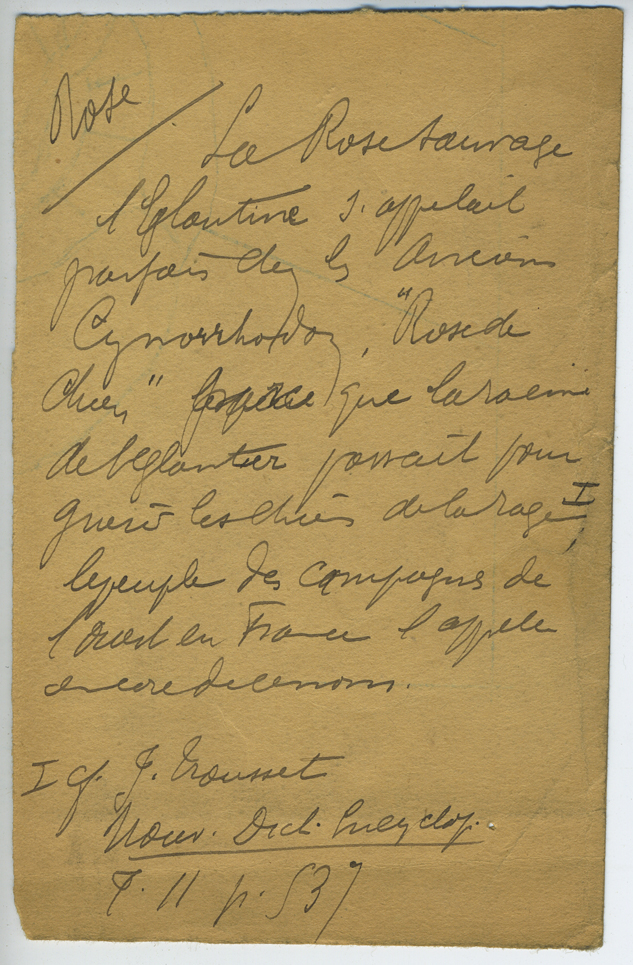 Rose
La Rose sauvage
l'Eglantine s'appelait
parfois chez les Anciens
Cynorrhodon, "Rose de
Chien" parce que la racine
de l'Eglantier passait pour
guérir les chiens de la rage I;
le peuple des campagnes de
l'ouest en France l'appelle
encore de ce nom.
I cf. J. Trousset
Nouv. Dict. Encyclop.
T. 11 p. 537